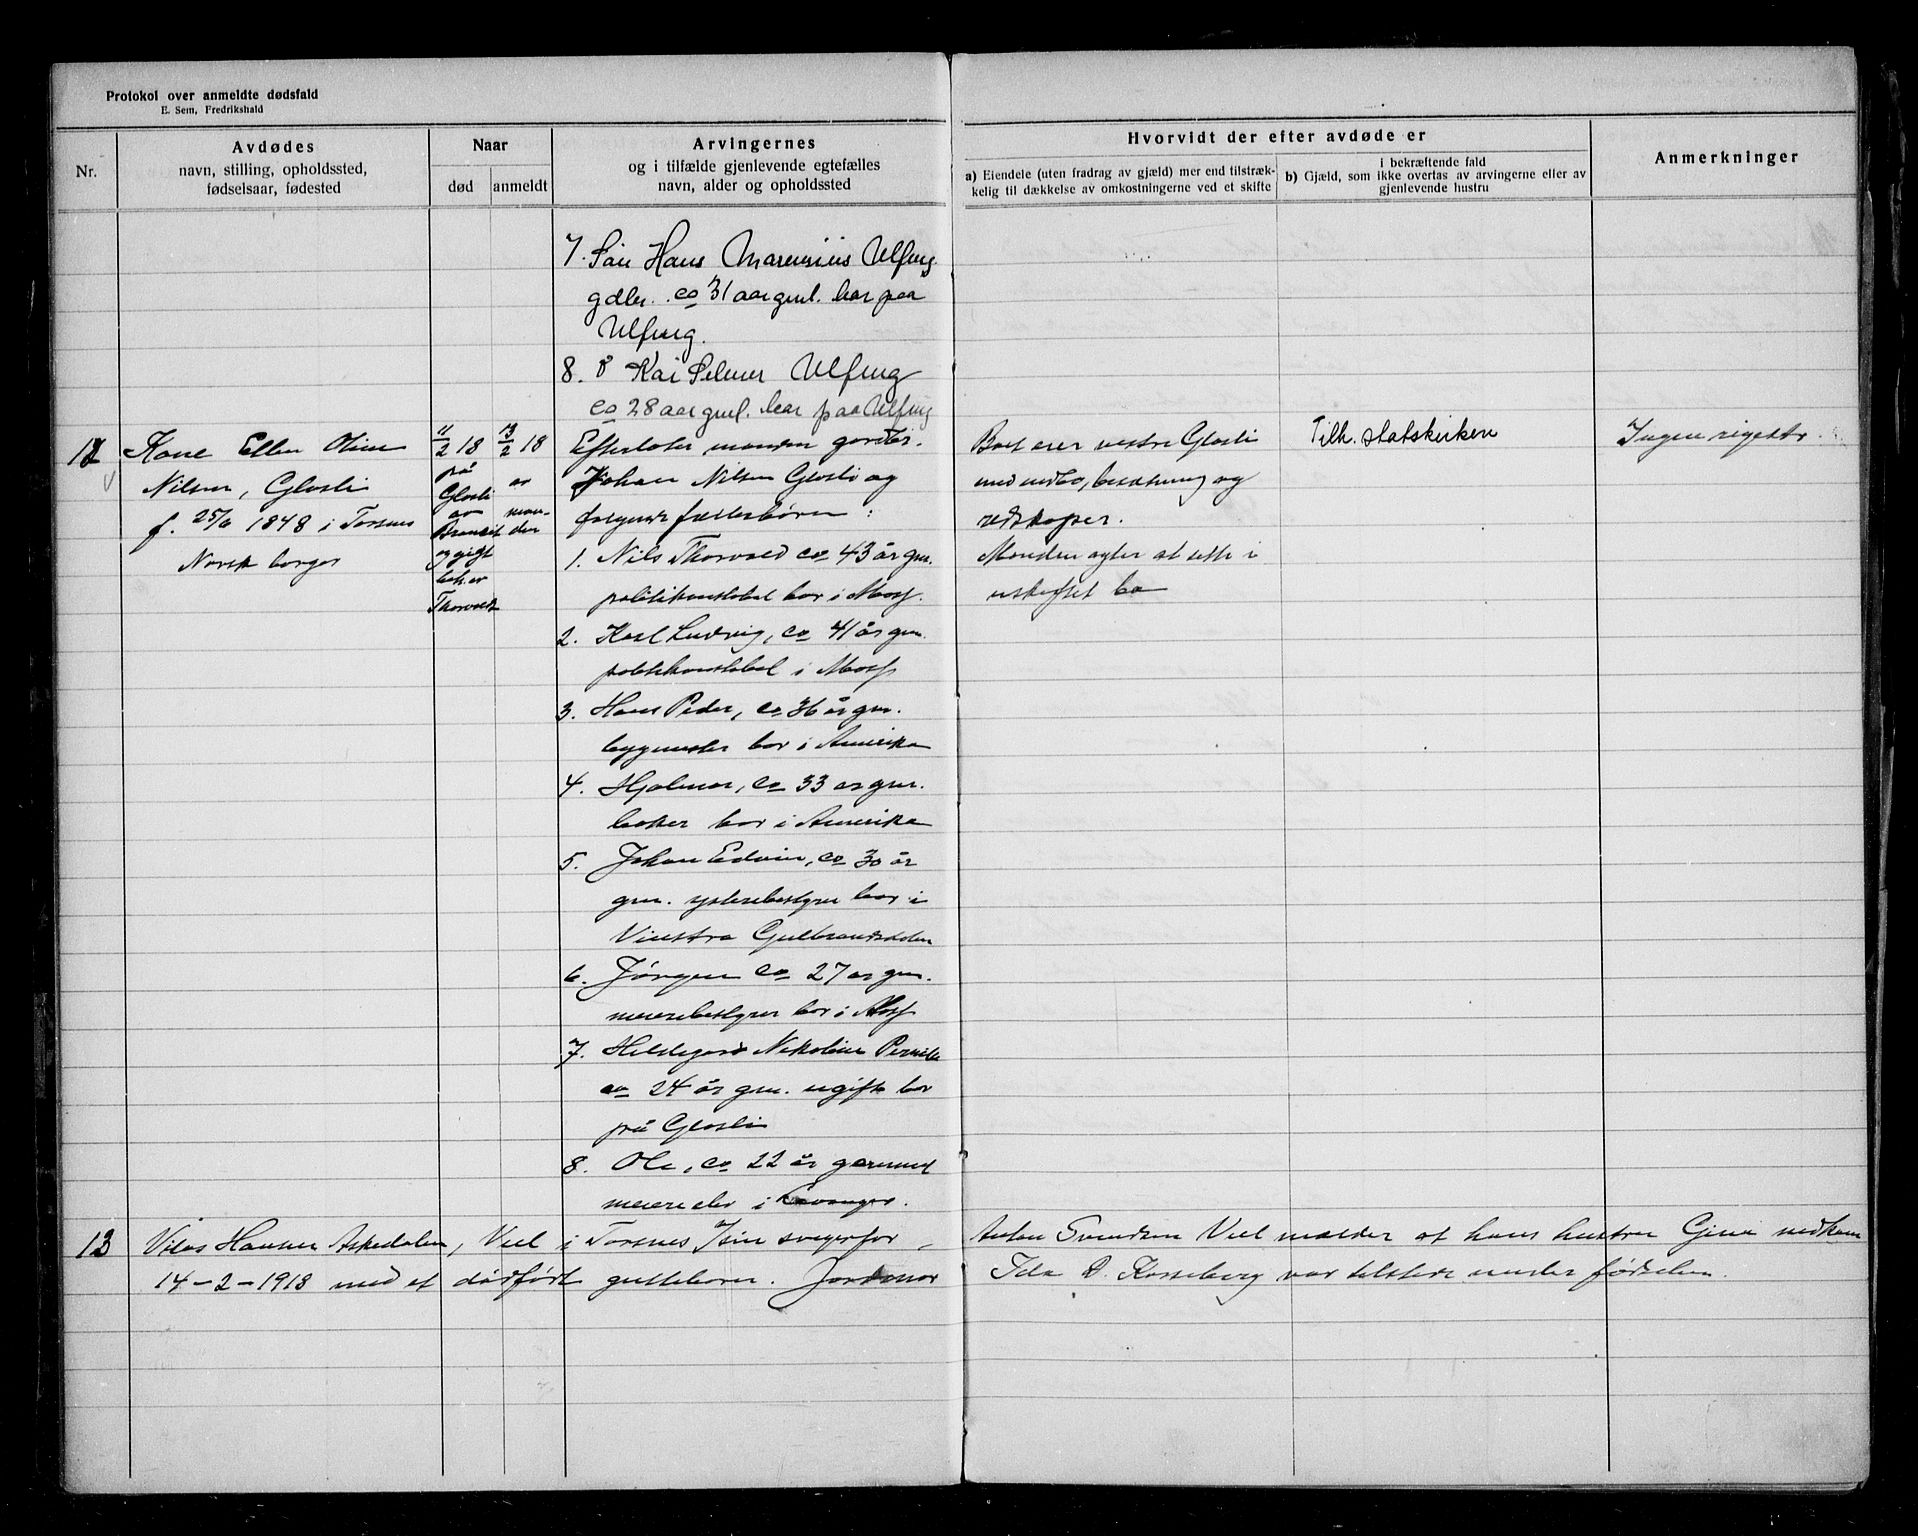 Protokol over anmeldte dødsfald
E. Sem, Fredrikshald
Nr.
Avdødes
navn, stilling, opholdssted,
fødselsaar, fødested
Naar
død
anmeldt
Arvingernes
og i tilfælde gjenlevende egtefælles
navn, alder og opholdssted
Hvorvidt der efter avdøde er
a) Eiendele (uten fradrag av gjæld) mer end tilstræk-
kelig til dækkelse av omkostningerne ved et skifte
i bekræftende fald
b) Gjæld, som ikke overtas av arvingerne eller av
gjenlevende hustru
Anmerkninger
7. Søn Hans Marensius Ulfeng
gdbr. ca 31 aar gml. bor paa
Ulfeng.
8. Kai Selmer Ulfeng
ca 28 aar gml. bor paa Ulfeng
12
Kone Ellen Oline
Nilsen, Glosli
f. 25/6 1848 i Torsnes
Norsk borger
11/2 18
på
Glosli
av
og gift
Thorvald
13/2 18
av
man-
den
Efterlater manden gardbr.
Johan Nilsen Glosli og
følgende fællesbörn :
1. Nils Thorvald ca 43 år gm.
politikonstabel bor i Moss.
2. Karl Ludvig, ca 41 år gm.
politikonstabel i Moss
3. Hans Peder, ca 36 år gm.
bygmester bor i Amerika
4. Hjalmar, ca 33 år gm.
baker bor i Amerika
5. Johan Edvin, ca 30 år
gm. ysteribestyrer bor i
Vinstra Gulbrandsdalen
6. Jörgen ca 27 år gm.
meieribestyrer bor i Moss
7. Hildegard Nikoline Pernille
ca 24 år gm. ugift bor
på Glosli
8. Ole, ca 22 år gammel
meierielev i Levanger.
Boet eier vestre Glosli
med indbo, besætning og
redskaper.
Manden agter at sitte i
uskiftet bo
Tilh. statskirken
Ingen
13
Hansen Aspedalen, Veel i Torsnes sin svigerfar
Anton Svendsen Veel melder at hans hustru Gina nedkom
14-2-1918 med et dødfödt guttebarn. Jordmor
Ida Kosseberg var tilstede under fødselen.